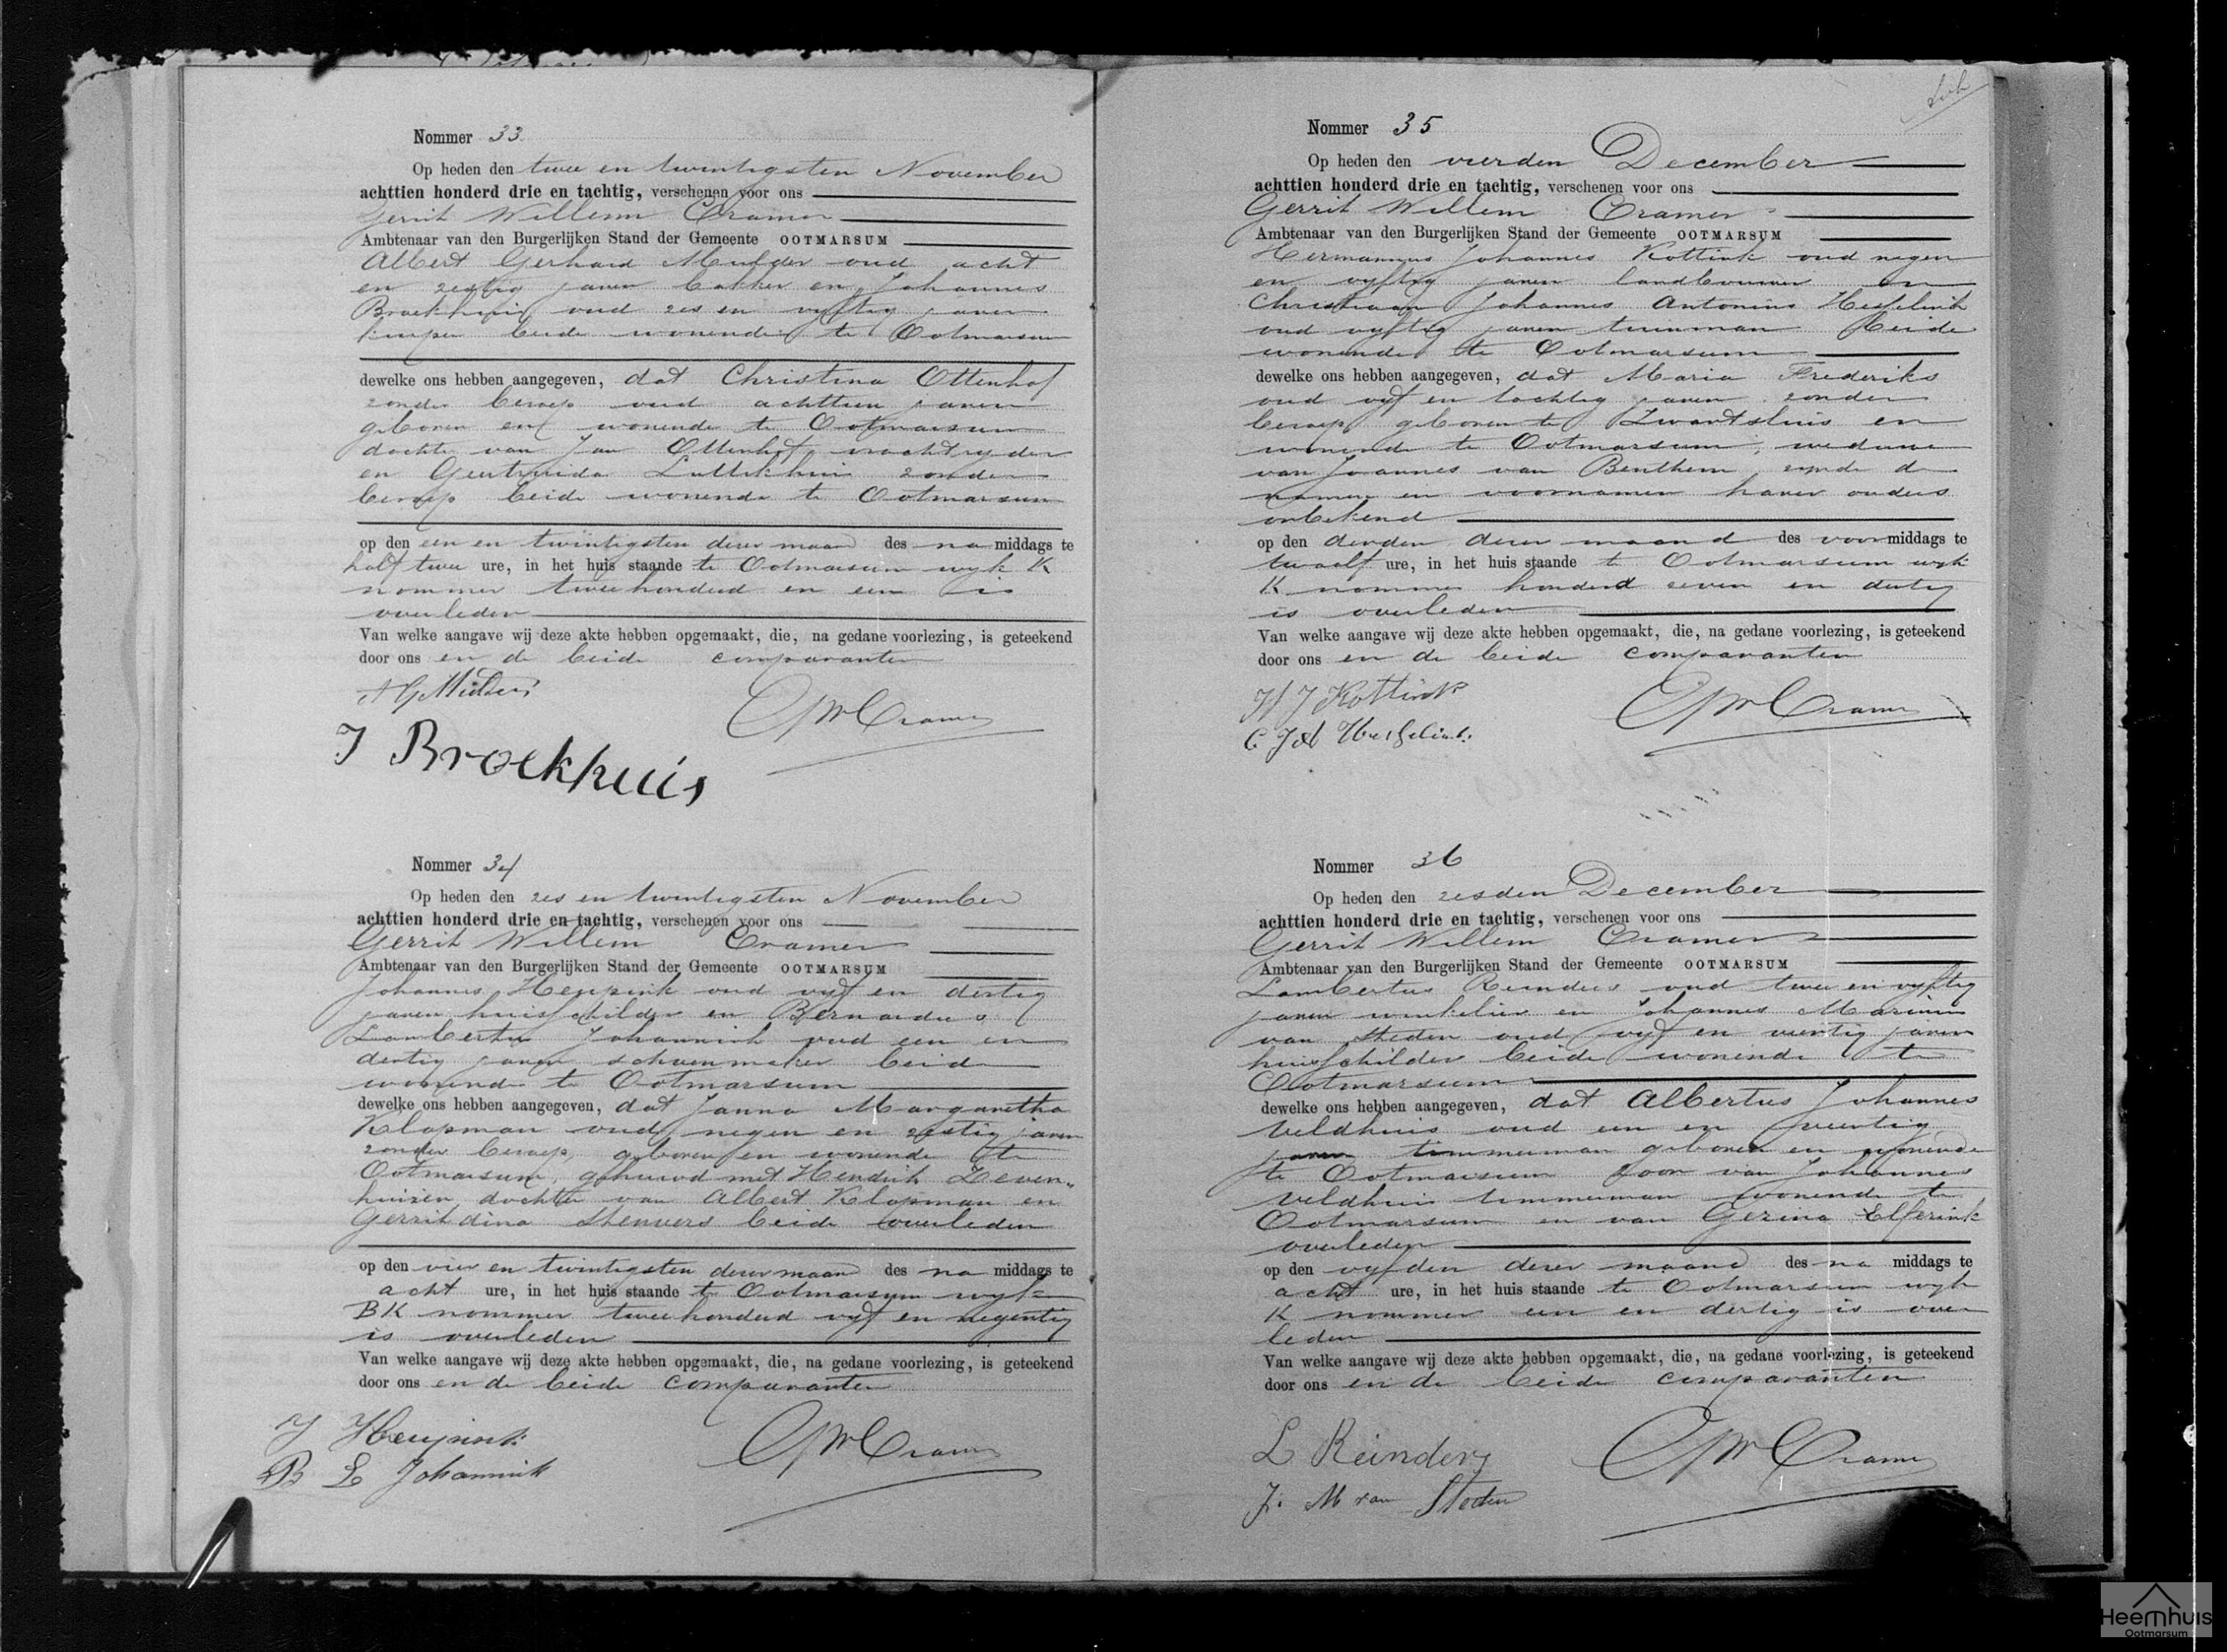 Nommer 33.
Op heden den twee en twintigsten November
achttien honderd drie en tachtig, verschenen voor ons
Gerrit Willem Cramer
Ambtenaar van den Burgerlijken Stand der Gemeente OOTMARSUM
Albert Gerhard Mulder oud acht
en zestig jaren bakker en Johannes
Broekhuis oud zes en vyftig jaren
kuiper beide wonende te Ootmarsum
dewelke ons hebben aangegeven, dat Christina Ottenhof
zonder beroep oud achttien jaren
geboren en wonende te Ootmarsum
dochter van Jan Ottenhof vrachtryder
en Geertruida Luttikhuis zonder
beroep beide wonende te Ootmarsum
op den een en twintigsten dezer maand des na middags te
half twee ure, in het huis staande te Ootmarsum wyk K
nommer tweehonderd en een is
overleden
Van welke aangave wij deze akte hebben opgemaakt, die, na gedane voorlezing, is geteekend
door ons en de beide comparanten
A G Mulder
GWCramer
J Broekhuis
Nommer 34
Op heden den zes en twintigsten November
achttien honderd drie en tachtig, verschenen voor ons
Gerrit Willem Cramer
Ambtenaar van den Burgerlijken Stand der Gemeente OOTMARSUM
Johannes Heupink oud vyf en dertig
jaren huisschilder en Bernardus
Lambertus Johannink oud een en
dertig jaren schoenmaker beide
wonende te Ootmarsum
dewelke ons hebben aangegeven, dat Janna Margaretha
Klopman oud negen en zestig jaren
zonder beroep, geboren en wonende te
Ootmarsum, gehuwd met Hendrik Zeven„
huizen dochter van Albert Klopman en
Gerritdina Stenvers beide overleden
op den vier en twintigsten dezer maand des na middags te
acht ure, in het huis staande te Ootmarsum wyk
BK nommer tweehonderd vyf en negentig
is overleden
Van welke aangave wij deze akte hebben opgemaakt, die, na gedane voorlezing, is geteekend
door ons en de beide comparanten
J Heupink
GWCramer
B L Johannink
Nommer 35
Op heden den vierden December
achttien honderd drie en tachtig, verschenen voor ons
Gerrit Willem Cramer
Ambtenaar van den Burgerlijken Stand der Gemeente OOTMARSUM
Hermannus Johannes Kottink oud negen
en vyftig jaren landbouwer en
Christiaan Johannes Antonius Hesselink
oud vyftig jaren tuinman beide
wonende te Ootmarsum
dewelke ons hebben aangegeven, dat Maria Frederiks
oud vyf en tachtig jaren zonder
beroep geboren te Zwartsluis en
wonende te Ootmarsum, weduwe
van Joannes van Benthem, zynde de
namen en voornamen harer ouders
onbekend
op den derden dezer maand des voormiddags te
twaalf ure, in het huis staande te Ootmarsum wyk
K nommer honderd zeven en dertig
is overleden
Van welke aangave wij deze akte hebben opgemaakt, die, na gedane voorlezing, is geteekend
door ons en de beide comparanten
H J Kottink
GWCramer
C J A Hesselink
Nommer 36
Op heden den zesden December
achttien honderd drie en tachtig, verschenen voor ons
Gerrit Willem Cramer
Ambtenaar van den Burgerlijken Stand der Gemeente OOTMARSUM
Lambertus Reinders oud twee en vyftig
jaren winkelier en Johannes Marinus
van Steden oud vyf en veertig jaren
huisschilder beide wonende te
Ootmarsum
dewelke ons hebben aangegeven, dat Albertus Johannes
Veldhuis oud een en veertig
jaren timmerman geboren en wonende
te Ootmarsum zoon van Johannes
Veldhuis timmerman wonende te
Ootmarsum en van Gezina Elferink
overleden
op den vyfden dezer maand des na middags te
acht ure, in het huis staande te Ootmarsum wyk
K nommer een en dertig is over
leden
Van welke aangave wij deze akte hebben opgemaakt, die, na gedane voorlezing, is geteekend
door ons en de beide comparanten
L Reinders
GWCramer
J. M van Steden
Heemhuis
Ootmarsum